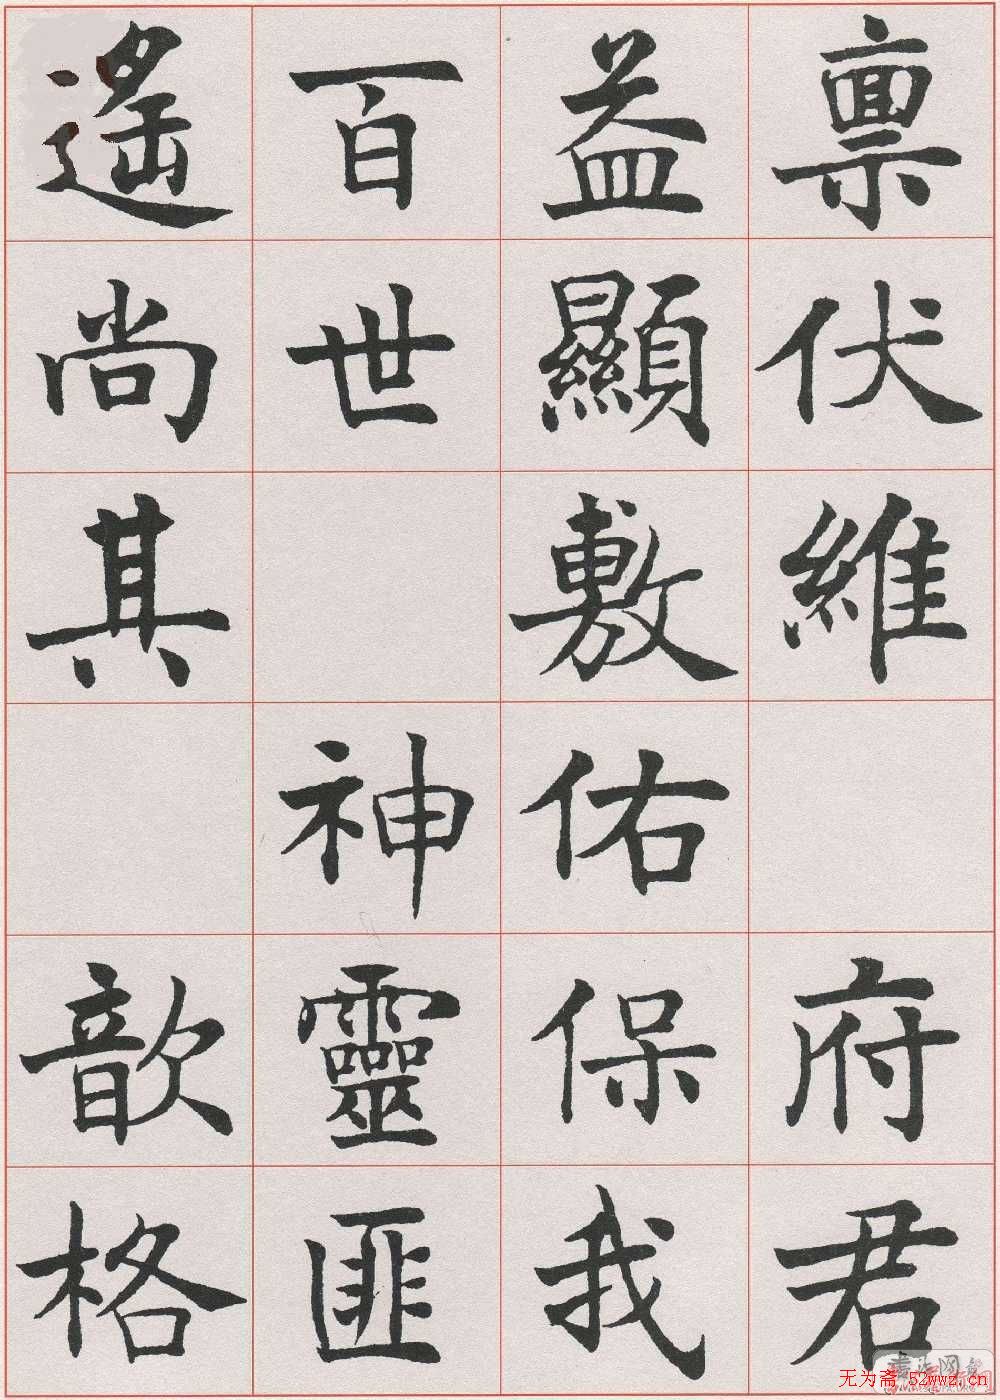 禀伏維府君
益顯敷佑保我
百世神靈匪
遙尚其歆格
无为斋 52wwz.cn